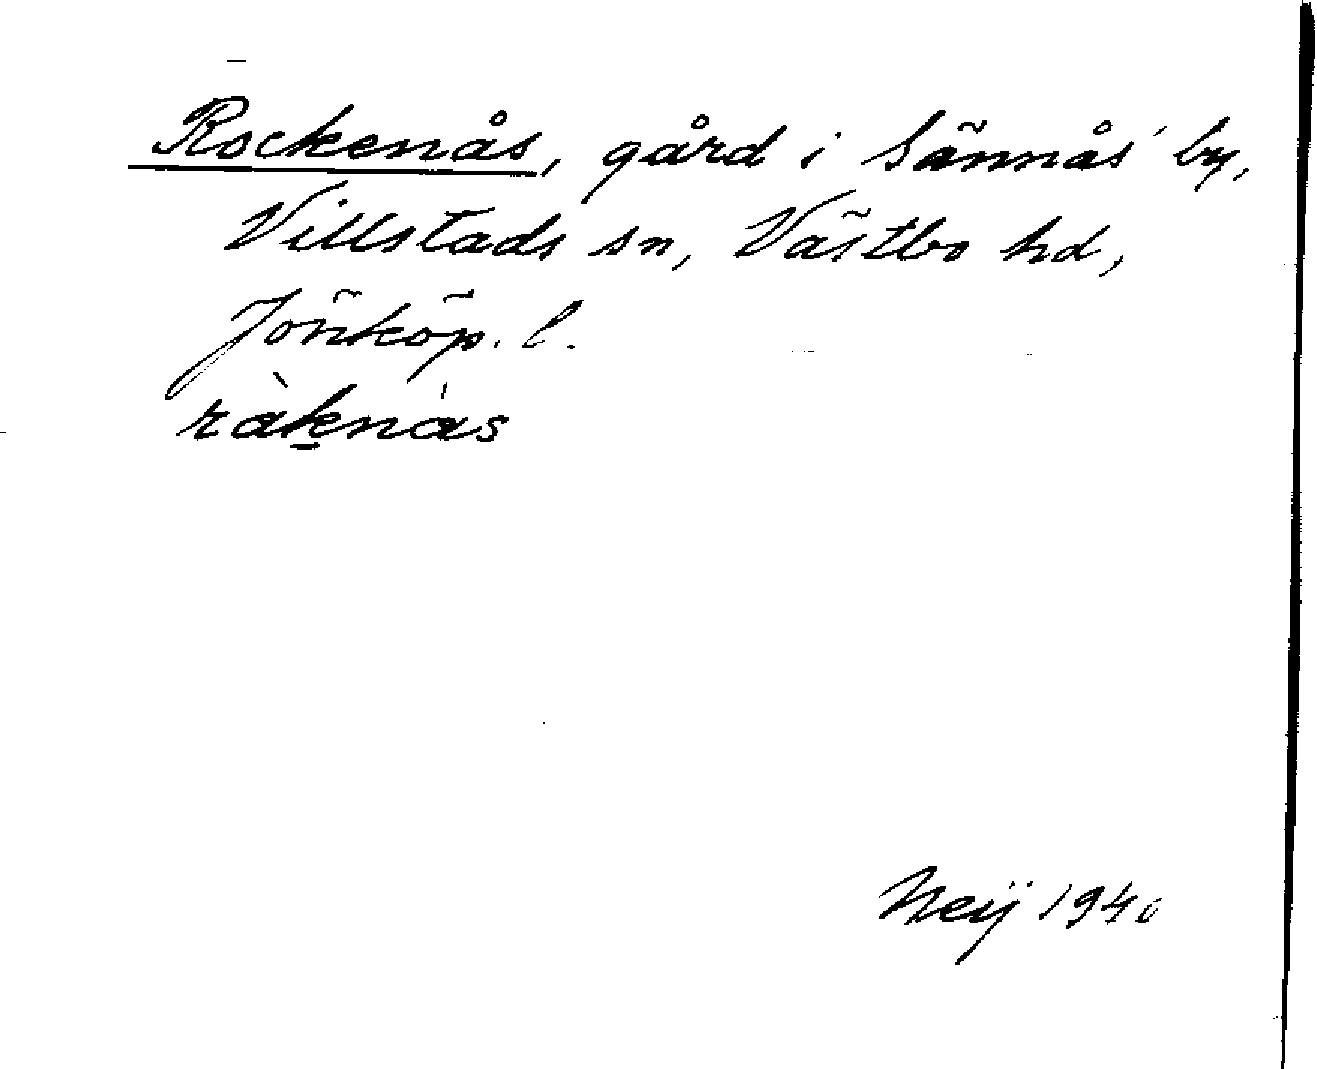 Rockenås, gård i Sännås by,
Villstads sn, Västbo hd,
Jönköp. l.
ràknás
Neij 1940